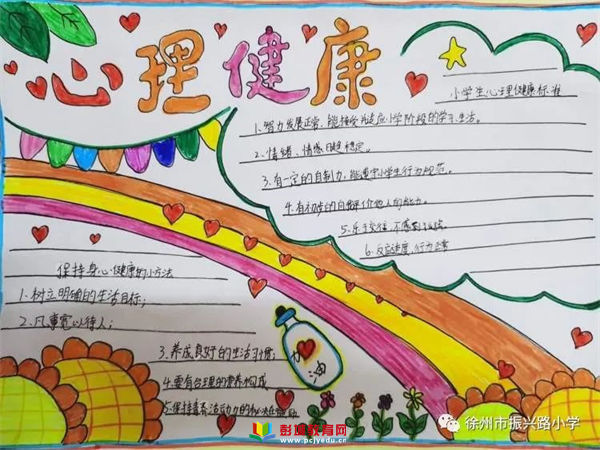 心理健康
小学生心理健康标准
1.智力发展正常,能接受并适应小学阶段的学习、生活。
2.情绪、情感日趋稳定。
3.有一定的自制力,能遵守小学生行为规范。
4.有初步的自我评价他人的能力。
5.乐于交往,不感到
6.反应适度,行为正常
保持身心健康的小方法
1.树立明确的生活目标;
2.凡事宽以待人;
3.养成良好的生活习惯;
4.要有合理的营养构成
5.保持着活动力的
加
油
彭城教育网
www.pcjyedu.cn
徐州市振兴路小学